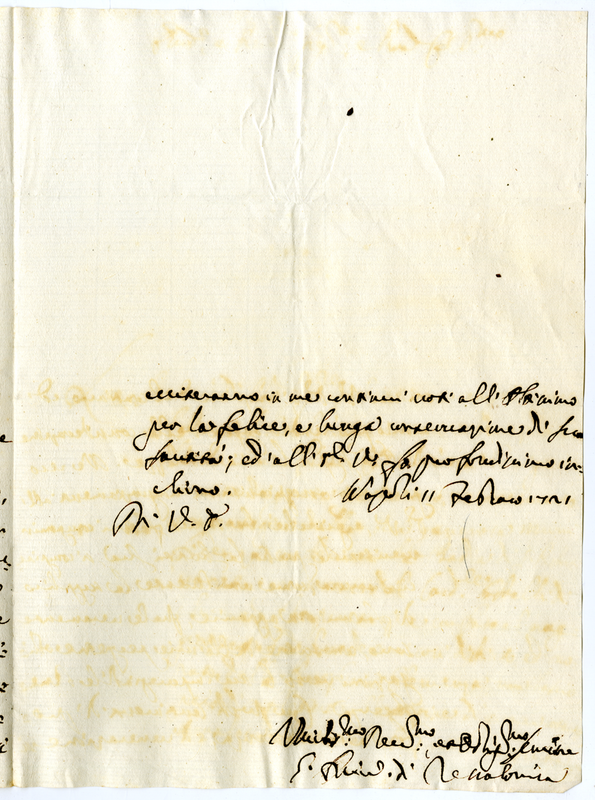 ecciteranno in me continui voti all'Altissimo
per la felice, e lunga conservazione di sua
Santità; ed all' V. fa profondissimo in-
chino. Napoli 11 Febraro 1721
Di V. S.
Umiliss.mo Dev.mo, ed Oblig.mo Servitore
G. di